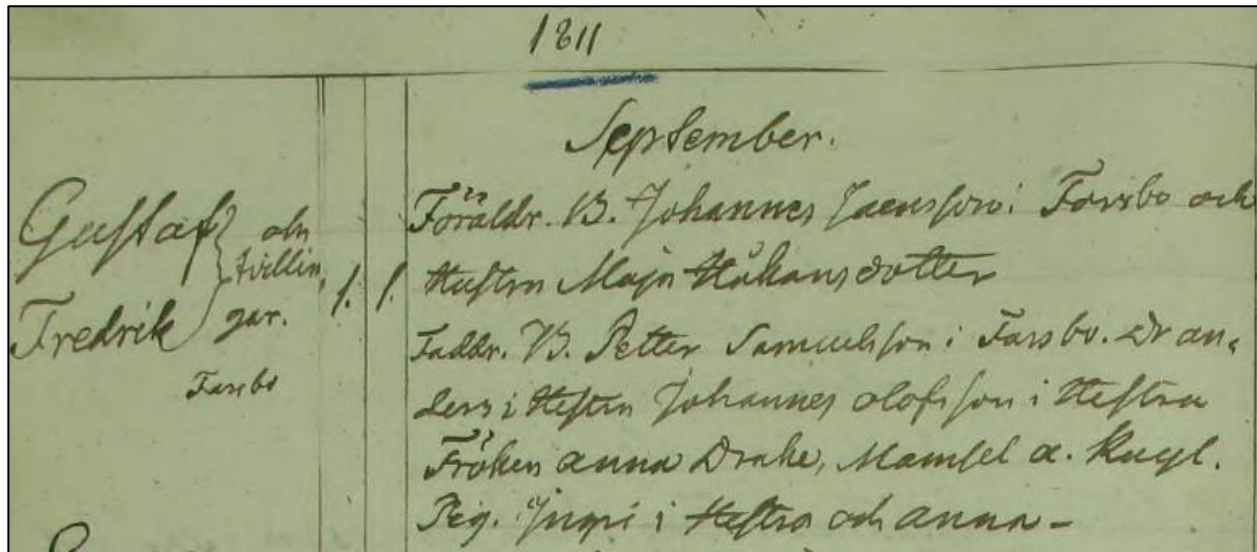 1811
September.
Gustaf och
tvillin,
Fredrik gar.
Farsbo
1. 1.
Föräldr. B. Johannes Jaensson i Farsbo och
Hustru Maja Håkansdotter
Faddr. B. Petter Samuelsson i Farsbo. Dr an,
ders i Hestra Johannes olofsson i Hestra
Fröken anna Drake, Mamsel a.
Pig. i Hestra och anna-